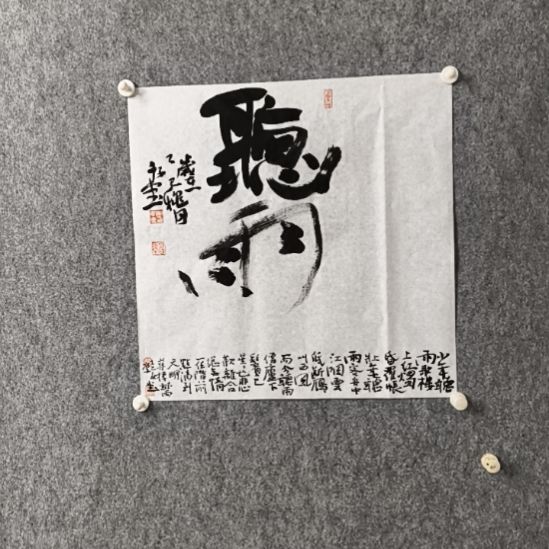 聽雨
歲在
乙巳權日
少年聽
雨歌樓
上紅燭
昏羅帳
壯年聽
雨客舟中
江闊雲
低斷鴈
叫西風
而今聽雨
僧廬下
鬢已
星也悲
歡離合
總無情
一任階前
點滴到
天明